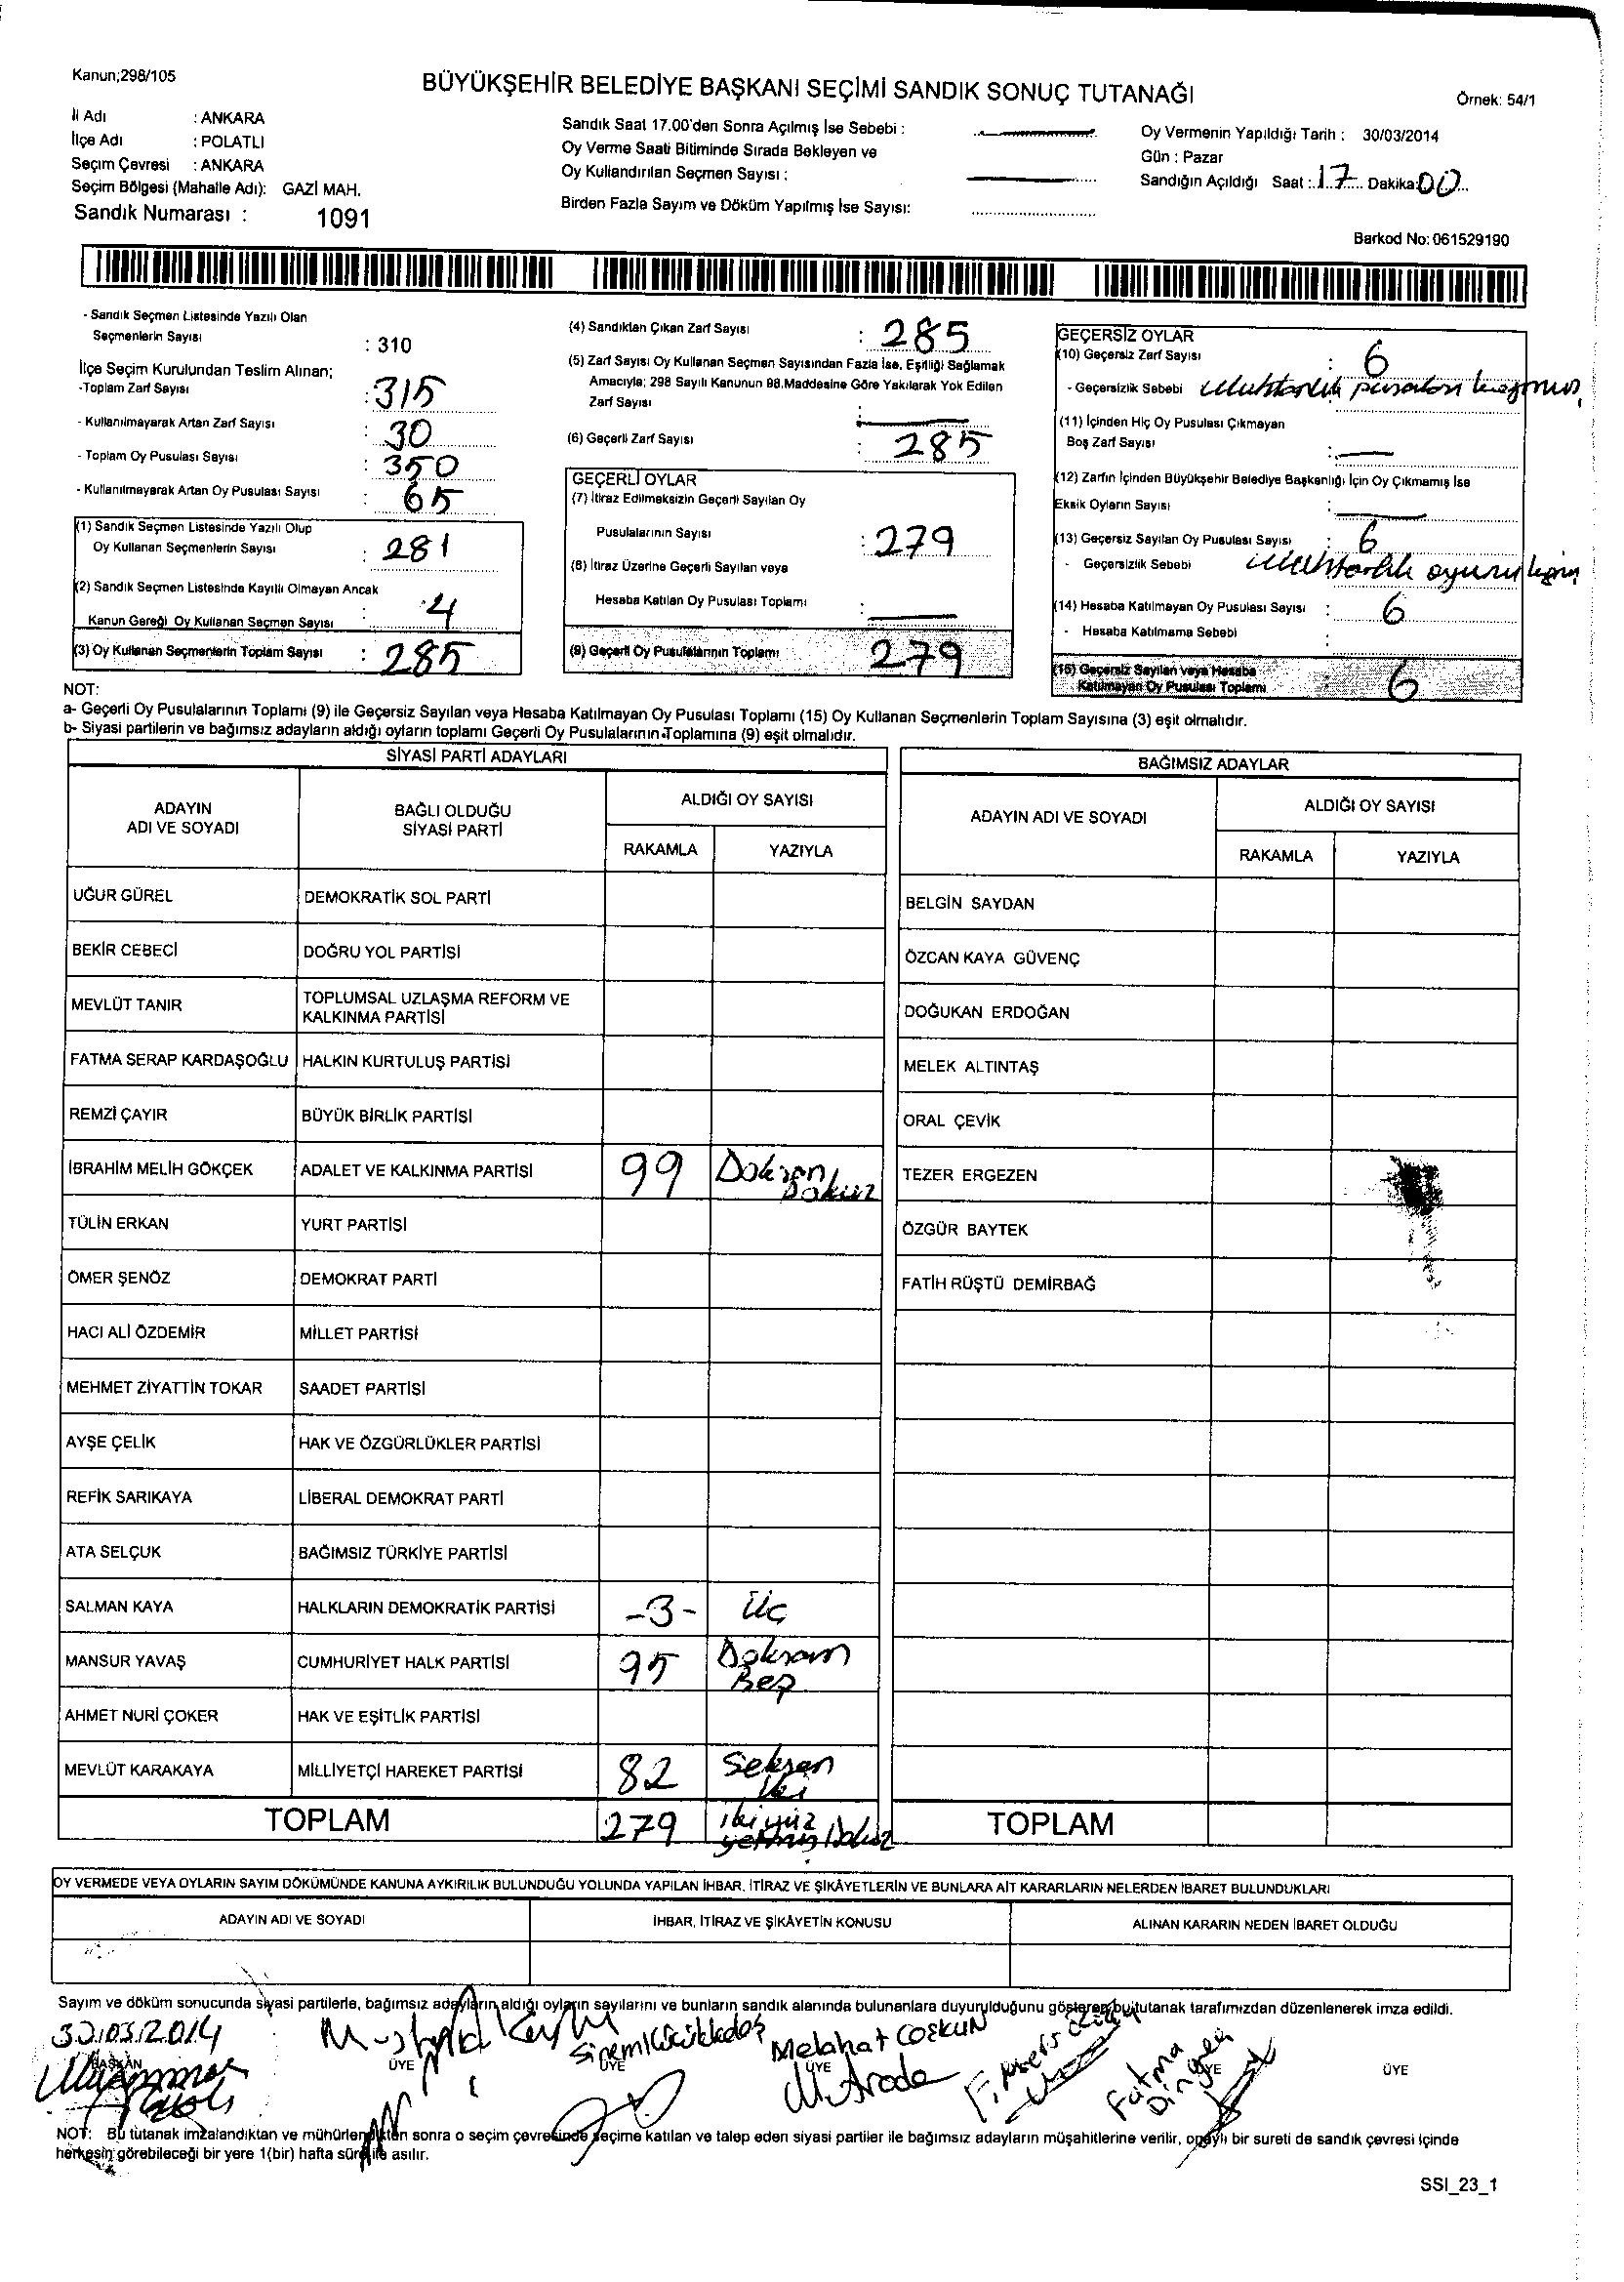 Kanun;298/105
BÜYÜKŞEHİR BELEDİYE BAŞKANI SEÇİMİ SANDIK SONUÇ TUTANAĞI
Örnek: 54/1
İl Adı : ANKARA
İlçe Adı : POLATLI
Seçim Çevresi : ANKARA
Seçim Bölgesi (Mahalle Adı): GAZİ MAH.
Sandık Numarası : 1091
Sandık Saat 17.00'den Sonra Açılmış İse Sebebi :
Oy Verme Saati Bitiminde Sırada Bekleyen ve
Oy Kullandırılan Seçmen Sayısı :
Birden Fazla Sayım ve Döküm Yapılmış İse Sayısı:
Oy Vermenin Yapıldığı Tarih : 30/03/2014
Gün : Pazar
Sandığın Açıldığı Saat : 17 Dakika: 00
Barkod No: 061529190
- Sandık Seçmen Listesinde Yazılı Olan
Seçmenlerin Sayısı : 310
İlçe Seçim Kurulundan Teslim Alınan;
-Toplam Zarf Sayısı : 315
- Kullanılmayarak Artan Zarf Sayısı : 30
- Toplam Oy Pusulası Sayısı : 350
- Kullanılmayarak Artan Oy Pusulası Sayısı : 65
(1) Sandık Seçmen Listesinde Yazılı Olup
Oy Kullanan Seçmenlerin Sayısı : 281
(2) Sandık Seçmen Listesinde Kayıtlı Olmayan Ancak
Kanun Gereği Oy Kullanan Seçmen Sayısı : 4
(3) Oy Kullanan Seçmenlerin Toplam Sayısı : 285
(4) Sandıktan Çıkan Zarf Sayısı : 285
(5) Zarf Sayısı Oy Kullanan Seçmen Sayısından Fazla İse, Eşitliği Sağlamak
Amacıyla; 298 Sayılı Kanunun 98.Maddesine Göre Yakılarak Yok Edilen
Zarf Sayısı :
(6) Geçerli Zarf Sayısı : 285
GEÇERLİ OYLAR
(7) İtiraz Edilmeksizin Geçerli Sayılan Oy
Pusulalarının Sayısı : 279
(8) İtiraz Üzerine Geçerli Sayılan veya
Hesaba Katılan Oy Pusulası Toplamı :
(9) Geçerli Oy Pusulalarının Toplamı 279
GEÇERSİZ OYLAR
(10) Geçersiz Zarf Sayısı : 6
- Geçersizlik Sebebi
(11) İçinden Hiç Oy Pusulası Çıkmayan
Boş Zarf Sayısı :
(12) Zarfın İçinden Büyükşehir Belediye Başkanlığı İçin Oy Çıkmamış İse
Eksik Oyların Sayısı :
(13) Geçersiz Sayılan Oy Pusulası Sayısı : 6
- Geçersizlik Sebebi
(14) Hesaba Katılmayan Oy Pusulası Sayısı : 6
- Hesaba Katılmama Sebebi :
(15) Geçersiz Sayılan veya Hesaba
Katılmayan Oy Pusulası Toplamı 6
NOT:
a- Geçerli Oy Pusulalarının Toplamı (9) ile Geçersiz Sayılan veya Hesaba Katılmayan Oy Pusulası Toplamı (15) Oy Kullanan Seçmenlerin Toplam Sayısına (3) eşit olmalıdır.
b- Siyasi partilerin ve bağımsız adayların aldığı oyların toplamı Geçerli Oy Pusulalarının Toplamına (9) eşit olmalıdır.
SİYASİ PARTİ ADAYLARI
ADAYIN ADI VE SOYADI
BAĞLI OLDUĞU SİYASİ PARTİ
ALDIĞI OY SAYISI
RAKAMLA YAZIYLA
UĞUR GÜREL DEMOKRATİK SOL PARTİ
BEKİR CEBECİ DOĞRU YOL PARTİSİ
MEVLÜT TANIR TOPLUMSAL UZLAŞMA REFORM VE
KALKINMA PARTİSİ
FATMA SERAP KARDAŞOĞLU HALKIN KURTULUŞ PARTİSİ
REMZİ ÇAYIR BÜYÜK BİRLİK PARTİSİ
İBRAHİM MELİH GÖKÇEK ADALET VE KALKINMA PARTİSİ 99 Doksan
Dokuz
TÜLİN ERKAN YURT PARTİSİ
ÖMER ŞENÖZ DEMOKRAT PARTİ
HACI ALİ ÖZDEMİR MİLLET PARTİSİ
MEHMET ZİYATTİN TOKAR SAADET PARTİSİ
AYŞE ÇELİK HAK VE ÖZGÜRLÜKLER PARTİSİ
REFİK SARIKAYA LİBERAL DEMOKRAT PARTİ
ATA SELÇUK BAĞIMSIZ TÜRKİYE PARTİSİ
SALMAN KAYA HALKLARIN DEMOKRATİK PARTİSİ -3- üç
MANSUR YAVAŞ CUMHURİYET HALK PARTİSİ 95 Doksan
Beş
AHMET NURİ ÇOKER HAK VE EŞİTLİK PARTİSİ
MEVLÜT KARAKAYA MİLLİYETÇİ HAREKET PARTİSİ 82 Seksen
iki
TOPLAM 279 ikiyüz
yetmiş Dokuz
BAĞIMSIZ ADAYLAR
ADAYIN ADI VE SOYADI
ALDIĞI OY SAYISI
RAKAMLA YAZIYLA
BELGİN SAYDAN
ÖZCAN KAYA GÜVENÇ
DOĞUKAN ERDOĞAN
MELEK ALTINTAŞ
ORAL ÇEVİK
TEZER ERGEZEN
ÖZGÜR BAYTEK
FATİH RÜŞTÜ DEMİRBAĞ
TOPLAM
OY VERMEDE VEYA OYLARIN SAYIM DÖKÜMÜNDE KANUNA AYKIRILIK BULUNDUĞU YOLUNDA YAPILAN İHBAR, İTİRAZ VE ŞİKÂYETLERİN VE BUNLARA AİT KARARLARIN NELERDEN İBARET BULUNDUKLARI
ADAYIN ADI VE SOYADI İHBAR, İTİRAZ VE ŞİKÂYETİN KONUSU ALINAN KARARIN NEDEN İBARET OLDUĞU
Sayım ve döküm sonucunda siyasi partilerle, bağımsız adayların aldığı oyların sayılarını ve bunların sandık alanında bulunanlara duyurulduğunu gösteren bu tutanak tarafımızdan düzenlenerek imza edildi.
30.03.2014
Melahat COŞKUN
Fatma
BAŞKAN ÜYE ÜYE ÜYE ÜYE ÜYE
NOT: Bu tutanak imzalandıktan ve mühürlendikten sonra o seçim çevresinde seçime katılan ve talep eden siyasi partiler ile bağımsız adayların müşahitlerine verilir, onaylı bir sureti de sandık çevresi içinde
herkesin görebileceği bir yere 1(bir) hafta süre ile asılır.
SSI_23_1